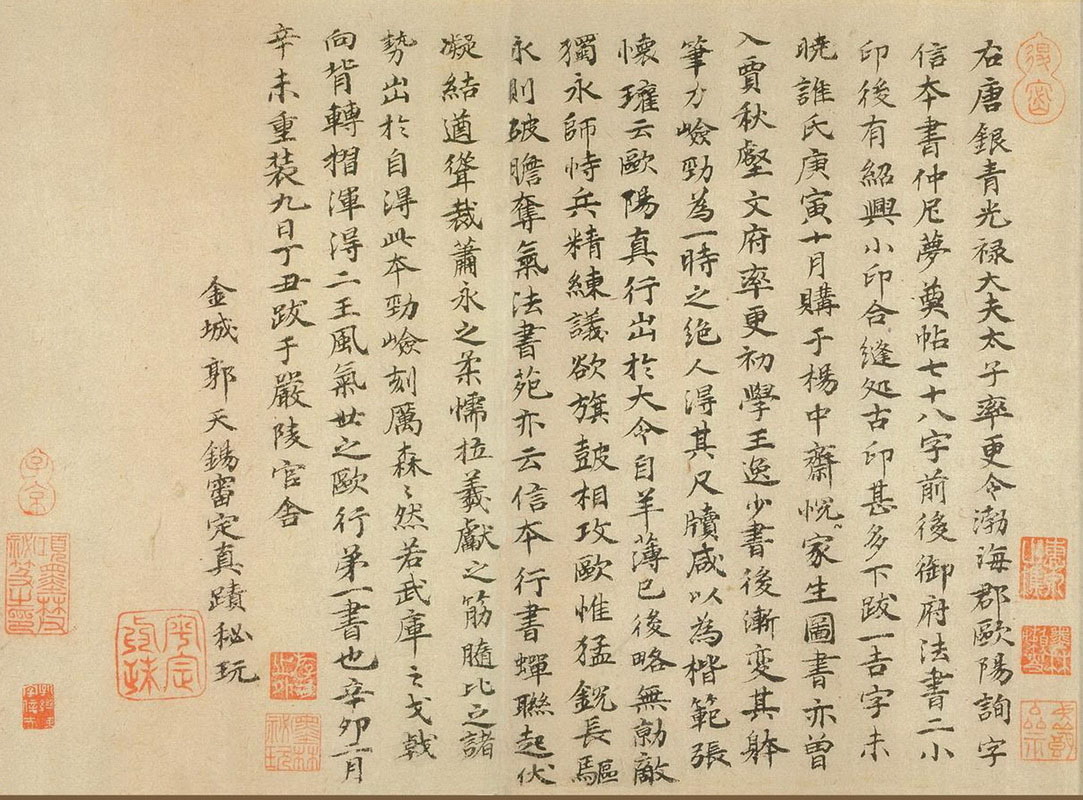 右唐銀青光禄大夫太子率更令渤海郡歐陽詢字
信本書仲尼夢奠帖七十八字前後御府法書二小
印後有紹興小印合縫処古印甚多下跋一吉字未
暁誰氏庚寅十月購于楊中齋悦家生圖書亦曾
入賈秋壑文府率更初學王逸少書後漸變其躰
筆力嶮勁為一時之絶人得其尺牘咸以為楷範張
懐瓘云歐陽真行出於大令自羊薄已後略無勍敵
獨永師恃兵精練議欲旗鼓相攻歐惟猛鋭長驅
永則破瞻奪氣法書苑亦云信本行書蟬聯起伏
凝結遒聳裁蕭永之柔懦拉羲獻之筋髓比之諸
勢出於自得此本勁嶮刻厲森〻然若武庫之戈戟
向背轉摺渾得二王風氣世之歐行苐一書也辛卯二月
辛未重装九日丁丑跋于嚴陵官舎
金城郭天錫審定真蹟秘玩
項墨林父秘笈之印
平定安珠
墨林秘玩